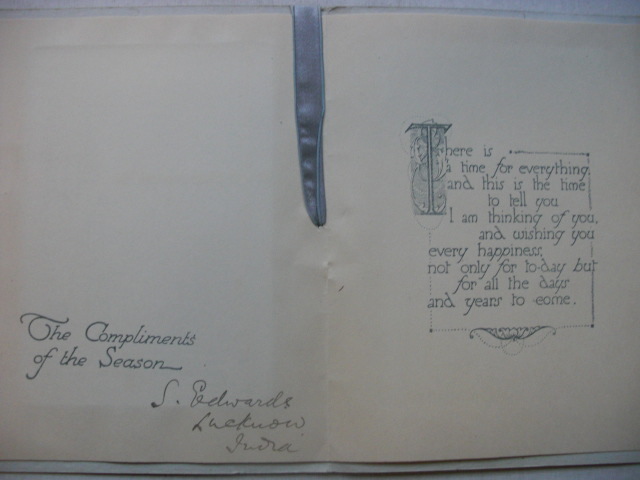 The Compliments
of the Season
S. Edwards
Lucknow
India
There is
a time for everything,
and this is the time
to tell you
I am thinking of you,
and wishing you
every happiness,
not only for to-day but
for all the days
and years to come.